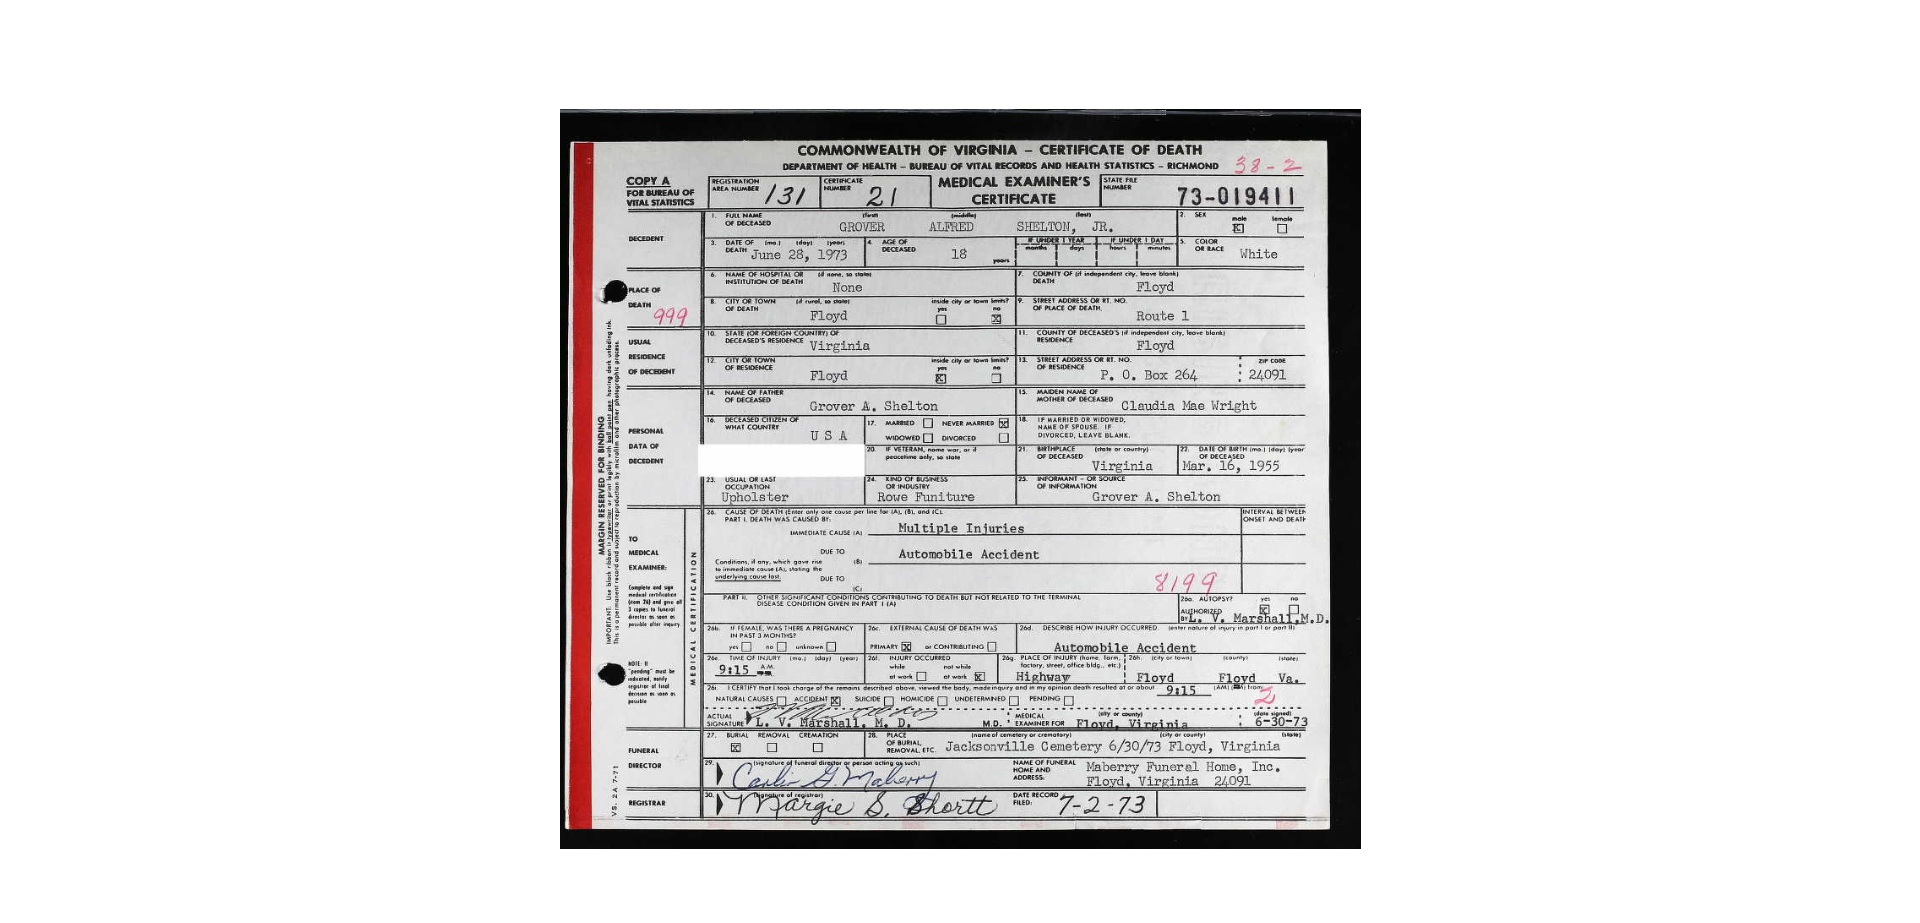 COMMONWEALTH OF VIRGINIA – CERTIFICATE OF DEATH
DEPARTMENT OF HEALTH – BUREAU OF VITAL RECORDS AND HEALTH STATISTICS – RICHMOND 38-2
COPY A
FOR BUREAU OF
VITAL STATISTICS
REGISTRATION
AREA NUMBER 131
CERTIFICATE
NUMBER 21
MEDICAL EXAMINER'S
CERTIFICATE
STATE FILE
NUMBER 73-019411
DECEDENT
1. FULL NAME (first) (middle) (last)
OF DECEASED GROVER ALFRED SHELTON, JR.
2. SEX male female
X
3. DATE OF (mo.) (day) (year)
DEATH June 28, 1973
4. AGE OF
DECEASED 18 years
IF UNDER 1 YEAR IF UNDER 1 DAY
months days hours minutes
5. COLOR
OR RACE White
PLACE OF
DEATH
999
6. NAME OF HOSPITAL OR (if none, so state)
INSTITUTION OF DEATH None
7. COUNTY OF (if independent city, leave blank)
DEATH Floyd
8. CITY OR TOWN (if rural, so state) inside city or town limits?
OF DEATH Floyd yes no X
9. STREET ADDRESS OR RT. NO.
OF PLACE OF DEATH. Route 1
USUAL
RESIDENCE
OF DECEDENT
10. STATE (OR FOREIGN COUNTRY) OF
DECEASED'S RESIDENCE Virginia
11. COUNTY OF DECEASED'S (if independent city, leave blank)
RESIDENCE Floyd
12. CITY OR TOWN inside city or town limits?
OF RESIDENCE Floyd yes X no
13. STREET ADDRESS OR RT. NO. ZIP CODE
OF RESIDENCE P. O. Box 264 : 24091
PERSONAL
DATA OF
DECEDENT
14. NAME OF FATHER
OF DECEASED Grover A. Shelton
15. MAIDEN NAME OF
MOTHER OF DECEASED Claudia Mae Wright
16. DECEASED CITIZEN OF
WHAT COUNTRY U S A
17. MARRIED NEVER MARRIED X
WIDOWED DIVORCED
18. IF MARRIED OR WIDOWED,
NAME OF SPOUSE. IF
DIVORCED, LEAVE BLANK.
20. IF VETERAN, name war, or if
peacetime only, so state
21. BIRTHPLACE (state or country)
OF DECEASED Virginia
22. DATE OF BIRTH (mo.) (day) (year
OF DECEASED
Mar. 16, 1955
23. USUAL OR LAST
OCCUPATION
Upholster
24. KIND OF BUSINESS
OR INDUSTRY
Rowe Funiture
25. INFORMANT – OR SOURCE
OF INFORMATION
Grover A. Shelton
TO
MEDICAL
EXAMINER:
Complete and sign
medical certification
(item 26) and give all
3 copies to funeral
director as soon as
possible after inquiry.
NOTE: If
"pending" must be
indicated, notify
registrar of final
decision as soon as
possible
MEDICAL CERTIFICATION
26. CAUSE OF DEATH (Enter only one cause per line for (A), (B), and (C).
PART I. DEATH WAS CAUSED BY:
IMMEDIATE CAUSE (A) Multiple Injuries
INTERVAL BETWEEN
ONSET AND DEATH
DUE TO
(B) Automobile Accident
Conditions, if any, which gave rise
to immediate cause (A), stating the
underlying cause last.
DUE TO
(C)
8199
PART II. OTHER SIGNIFICANT CONDITIONS CONTRIBUTING TO DEATH BUT NOT RELATED TO THE TERMINAL
DISEASE CONDITION GIVEN IN PART I (A)
26a. AUTOPSY? yes no
X
AUTHORIZED
BY L. V. Marshall, M.D.
26b. IF FEMALE, WAS THERE A PREGNANCY
IN PAST 3 MONTHS?
yes no unknown
26c. EXTERNAL CAUSE OF DEATH WAS
PRIMARY X or CONTRIBUTING
26d. DESCRIBE HOW INJURY OCCURRED. (enter nature of injury in part I or part II)
Automobile Accident
26e. TIME OF INJURY (mo.) (day) (year)
9:15 A.M.
26f. INJURY OCCURRED
while not while
at work at work X
26g. PLACE OF INJURY (home, farm,
factory, street, office bldg., etc.)
Highway
26h. (city or town) (county) (state)
Floyd Floyd Va.
26i. I CERTIFY that I took charge of the remains described above, viewed the body, made inquiry and in my opinion death resulted at or about 9:15 (AM) from:
NATURAL CAUSES ACCIDENT X SUICIDE HOMICIDE UNDETERMINED PENDING
2
ACTUAL
SIGNATURE L. V. Marshall, M. D. M.D.
MEDICAL (city or county)
EXAMINER FOR Floyd, Virginia
(date signed)
6-30-73
FUNERAL
DIRECTOR
27. BURIAL REMOVAL CREMATION
X
28. PLACE (name of cemetery or crematory) (city or county) (state)
OF BURIAL,
REMOVAL, ETC. Jacksonville Cemetery 6/30/73 Floyd, Virginia
29. (signature of funeral director or person acting as such)
Carlin G. Maberry
NAME OF FUNERAL
HOME AND
ADDRESS:
Maberry Funeral Home, Inc.
Floyd, Virginia 24091
REGISTRAR
30. (signature of registrar)
Margie S. Shortt
DATE RECORD
FILED: 7-2-73
MARGIN RESERVED FOR BINDING
IMPORTANT: Use black ribbon in typewriter or print legibly with ball point pen having dark unfading ink.
This is a permanent record and subject to reproduction by microfilm and other photographic process.
VS. 2A 7-71